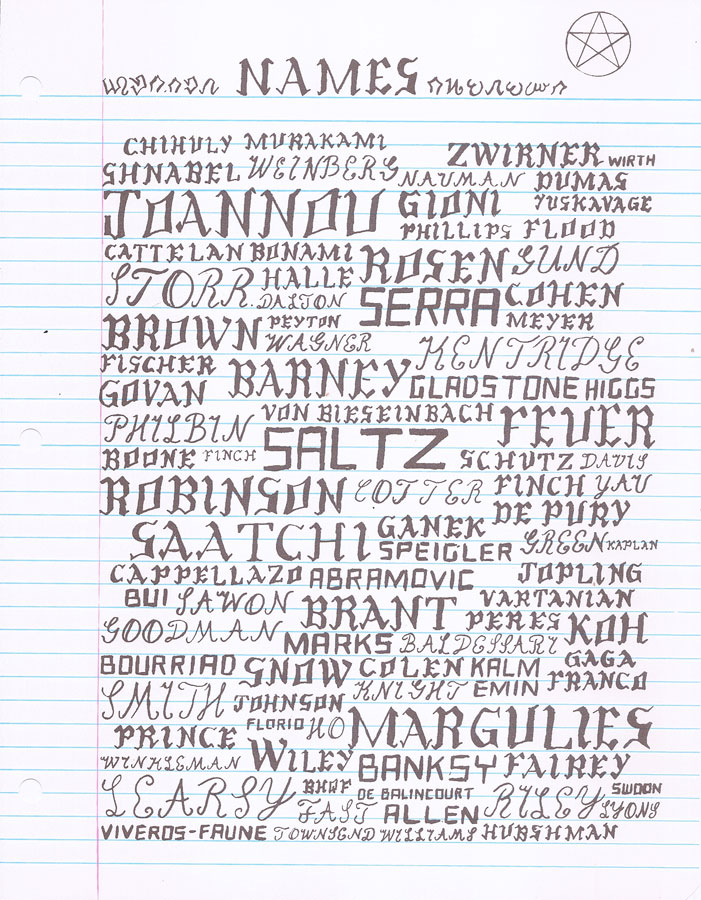 NAMES
CHIHULY MURAKAMI ZWIRNER WIRTH
SHNABEL WEINBERG NAUMAN DUMAS
JOANNOU GIONI YUSKAVAGE
PHILLIPS FLOOD
CATTELAN BONAMI ROSEN GUND
STORR HALLE DALTON SERRA COHEN
BROWN PEYTON WAGNER MEYER
FISCHER BARNEY KENTRIDGE
GOVAN GLADSTONE HIGGS
PHILBIN VON BIESEINBACH FEUER
BOONE FINCH SALTZ SCHUTZ DAVIS
ROBINSON COTTER FINCH YAU
SAATCHI GANEK DE PURY
SPEIGLER GREEN KAPLAN
CAPPELLAZO ABRAMOVIC JOPLING
BUI SAWON BRANT VARTANIAN
GOODMAN PERES KOH
MARKS BALDESSARI
BOURRIAD SNOW COLEN KALM GAGA
SMITH JOHNSON KNIGHT EMIN FRANCO
PRINCE FLORIO HO MARGULIES
WINKLEMAN WILEY BANKSY FAIREY
LEARSY BHQF DE BALINCOURT RILEY SWOON
FAST ALLEN LYONS
VIVEROS-FAUNE TOWNSEND WILLIAMS HUBSHMAN